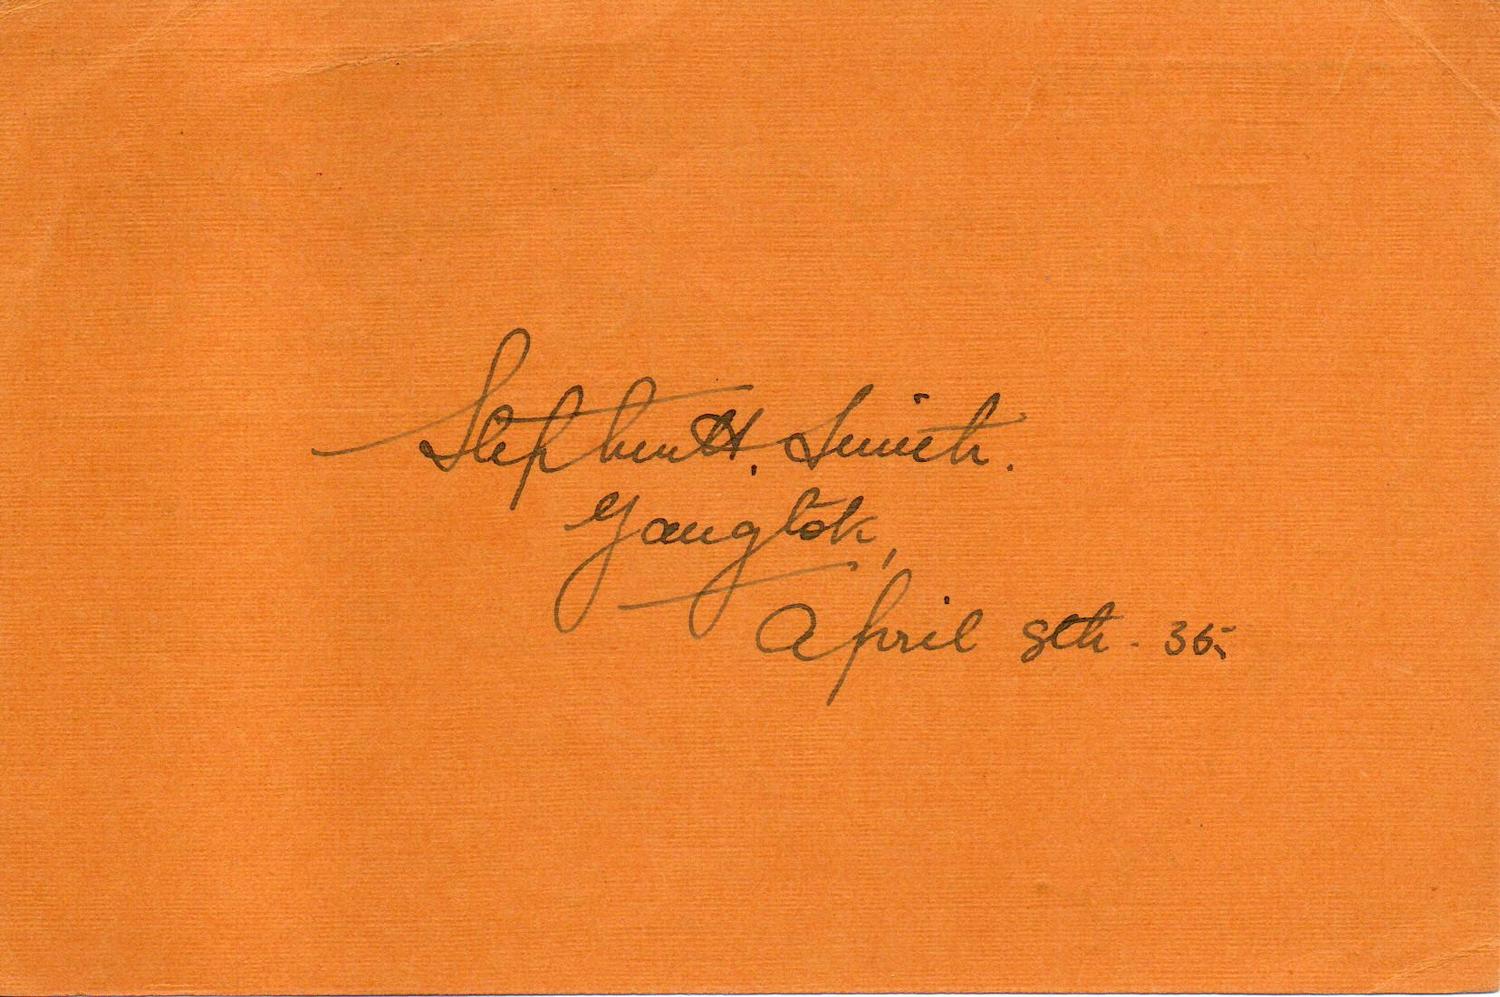 Stephen H. Smith.
Gangtok,
April 8th - 35.